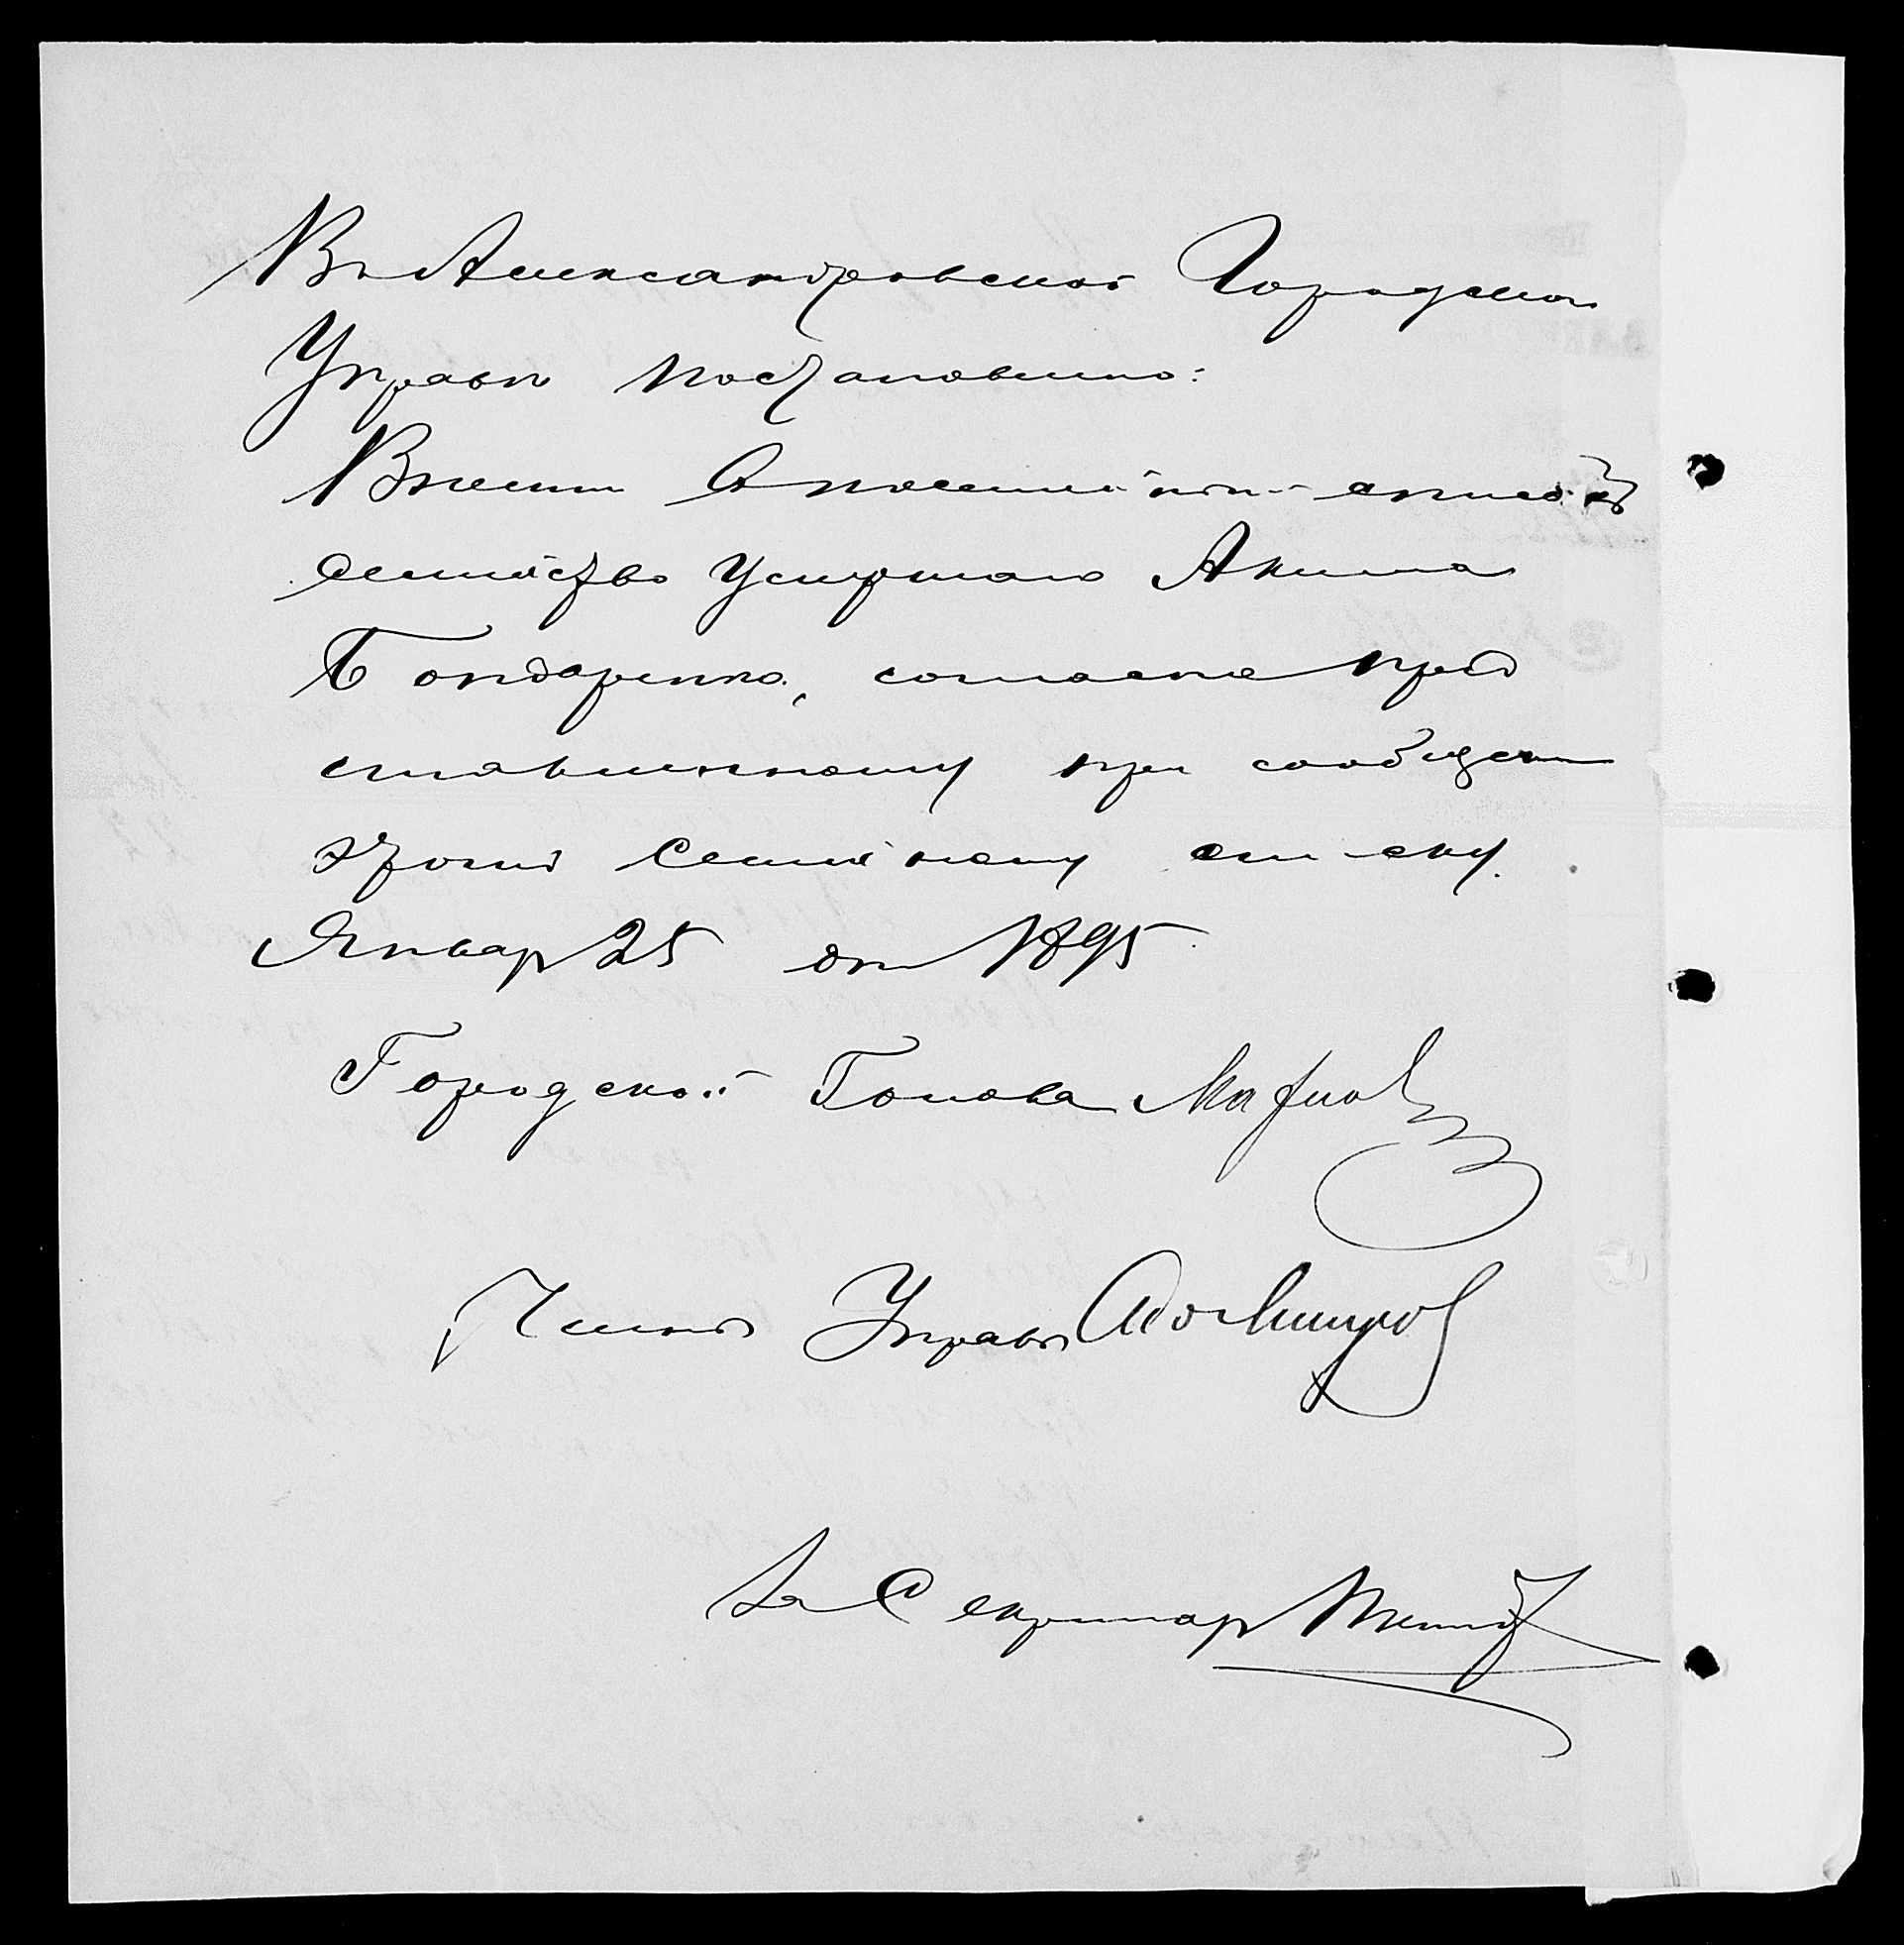 Въ Александровской Городской
Управѣ постановлено:
Внести в посемейный список
семейство умершаго Акима
Бондаренко, согласно пред
ставленному при сообщении
этом Семейному списку.
Январ 25 дн 1895
Городской Голова
Член Управы
За Секретар